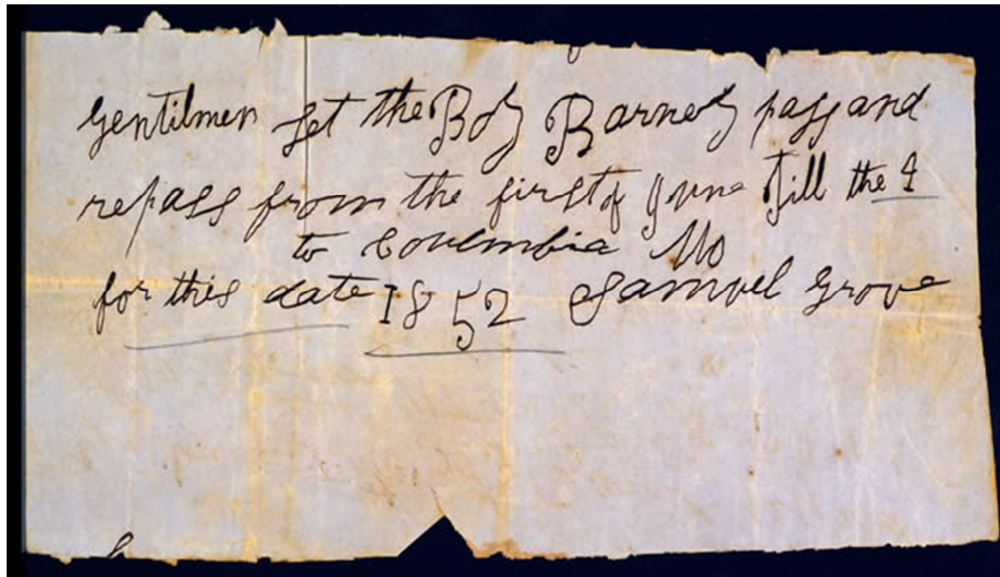 Gentilmen Let the Boy Barney pass and
repass from the first of June till the 4
to Coulmbia Mo
for this date 1852 Samuel Grove